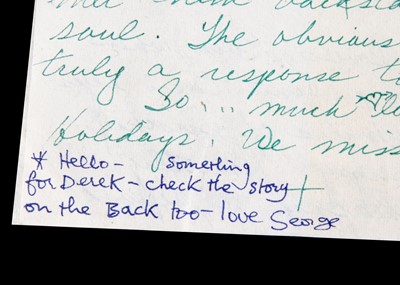 met them backsta
soul. The obvious
truly a response to
So... much lo
Holidays. We miss
* Hello - something
for Derek - check the story +
on the Back too - love George